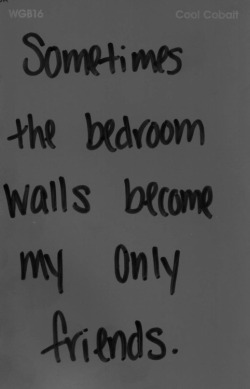 WGB16 Cool Cobalt
Sometimes
the bedroom
walls become
my only
friends.